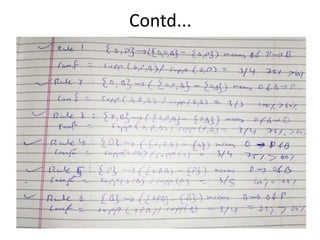 Contd...
Rule 1 : {O,P}→({O,P,B} - {O,P}) means O & P→B
Conf = supp(O,P,B)/supp(O,P) = 3/4 75% >60%
Rule 2 : {O,B}→({O,P,B} - {O,B}) means O & B→P
Conf = supp(O,P,B)/supp(O,B) = 3/3 100% >60%
Rule 3 : {P,B}→({O,P,B} - {P,B}) means P & B→O
Conf = supp(O,P,B)/supp(P,B) = 3/4 75% >60%
Rule 4 : {O}→({O,P,B} - {O}) means O→P & B
Conf = supp(O,P,B)/supp(O) = 3/4 75% >60%
Rule 5 : {P}→({O,P,B} - {P}) means P→O & B
Conf = supp(O,P,B)/supp(P) = 3/5
Rule 6 : {B}→({O,P,B} - {B}) means B→O & P
Conf = supp(O,P,B)/supp(B) = 3/4 = >60%